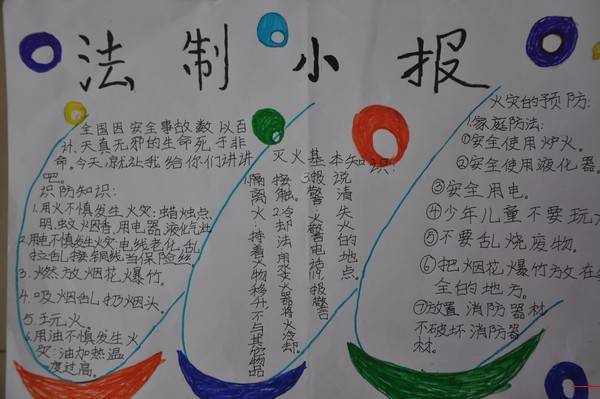 法制小报
全国因安全事故数以百
计,天真无邪的生命死于非
命。今天,就让我给你们讲讲
吧。
识防知识:
1.用火不慎发生火灾:蜡烛点
明,蚊火烟香,用电器液化气灶
2.用电不慎发生火灾:电线老化,乱
拉乱接,铜线当保险丝
3.燃放烟花爆竹。
4.吸烟乱扔烟头。
5.玩火。
6.用油不慎发生火
灾:油加热温
度过高。
灭火基本知识:
1.隔离火
接触。2.冷却法用灭火器将火冷却。
3.报警火警电话,报警
说清失火的地点。
火灾的预防:
1.家庭防法:
①安全使用炉火。
②安全使用液化器
③安全用电。
④少年儿童不要玩火
⑤不要乱烧废物。
⑥把烟花爆竹放在
全的地方。
⑦放置消防器材
不破坏消防器
材。